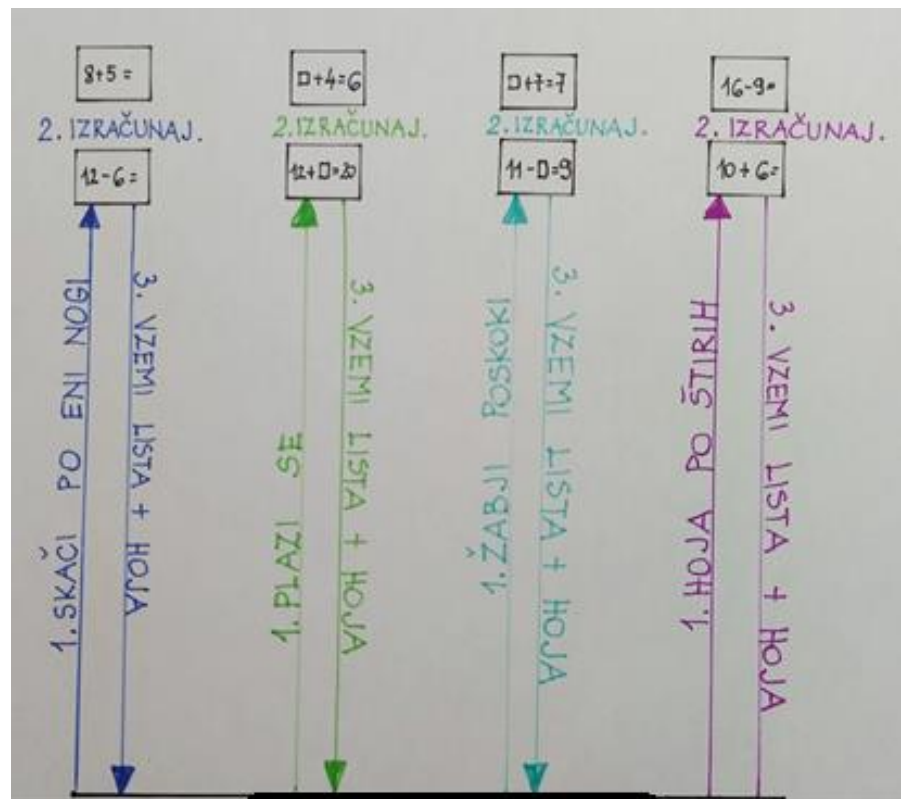 8+5=
2. IZRAČUNAJ.
12-6=
1. SKAČI PO ENI NOGI
3. VZEMI LISTA + HOJA
□+4=6
2. IZRAČUNAJ.
12+□=20
1. PLAZI SE
3. VZEMI LISTA + HOJA
□+7=7
2. IZRAČUNAJ.
11-□=9
1. ŽABJI POSKOKI
3. VZEMI LISTA + HOJA
16-9=
2. IZRAČUNAJ.
10+6=
1. HOJA PO ŠTIRIH
3. VZEMI LISTA + HOJA